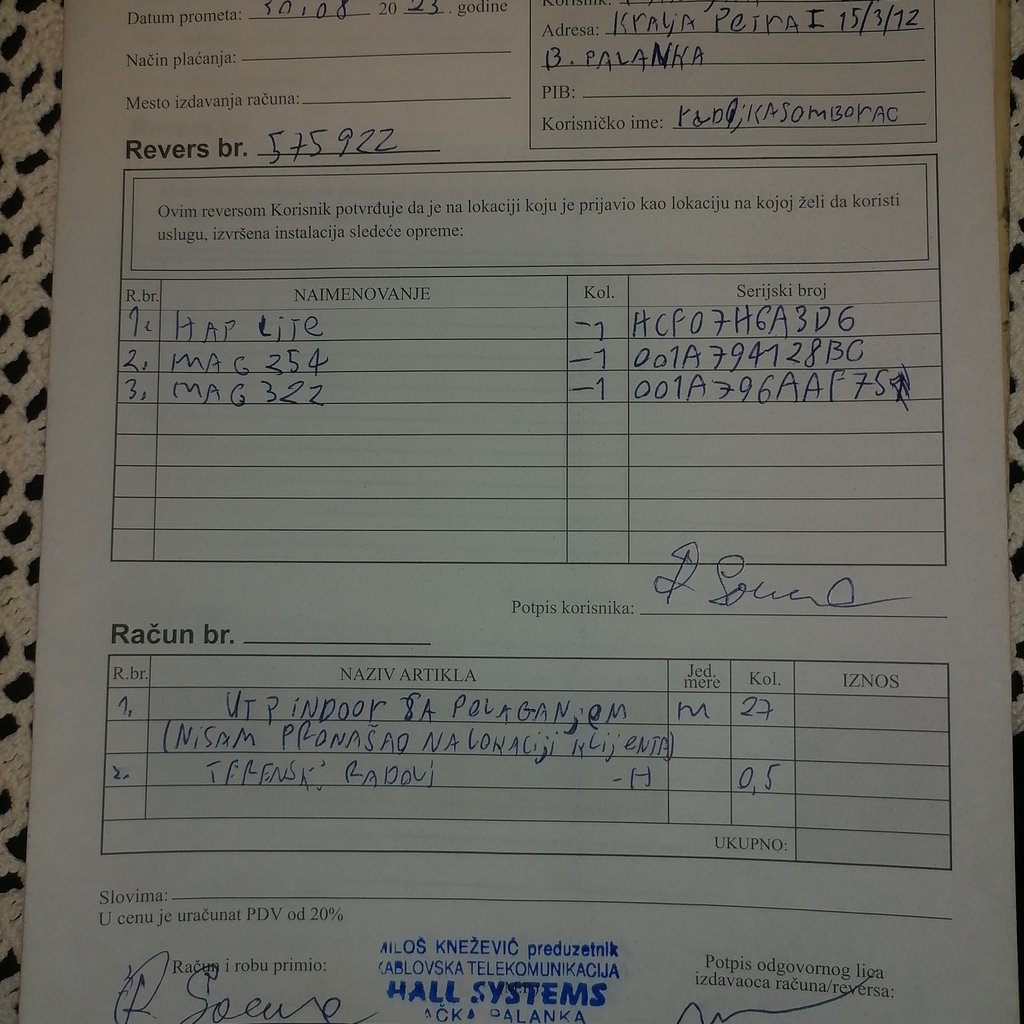 Datum prometa: 30.08 20 23. godine
Korisnik:
Adresa: KRALJA PETRA I 15/3/12
B. PALANKA
Način plaćanja:
PIB:
Mesto izdavanja računa:
Korisničko ime: radojkasomborac
Revers br. 575922
Ovim reversom Korisnik potvrđuje da je na lokaciji koju je prijavio kao lokaciju na kojoj želi da koristi
uslugu, izvršena instalacija sledeće opreme:
R.br. NAIMENOVANJE Kol. Serijski broj
1. HAP LITE -1 HCF07H6A3D6
2. MAG 254 -1 001A794128BC
3. MAG 322 -1 001A796AAF75
Potpis korisnika:
Račun br.
R.br. NAZIV ARTIKLA Jed. mere Kol. IZNOS
1. UTP INDOOR SA POLAGANJEM m 27
(NISAM PRONAŠAO NA LOKACIJI KLIJENTA)
2. TERENSKI RADOVI -H 0,5
UKUPNO:
Slovima:
U cenu je uračunat PDV od 20%
MILOŠ KNEŽEVIĆ preduzetnik
KABLOVSKA TELEKOMUNIKACIJA
HALL SYSTEMS
BAČKA PALANKA
Račun i robu primio:
Potpis odgovornog lica
izdavaoca računa/reversa: